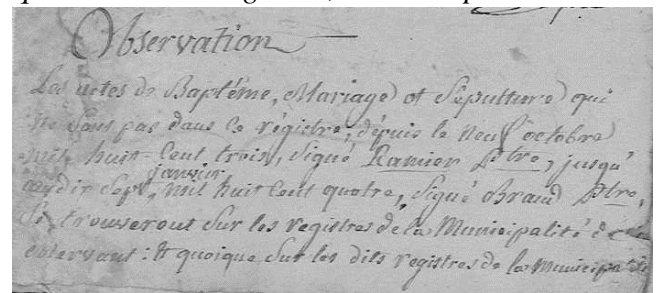 Observation
Les actes de Baptême, Mariage et Sépulture qui
ne sont pas dans ce régistre, dépuis le neuf octobre
mil huit Cent trois, signé Ramier Ptre, jusqu'
janvier
au dix sept, mil huit Cent quatre, signé Braud Ptre,
se trouveront sur les registres de la Municipalité de
: Et quoique sur les dits registres de la Municipalité